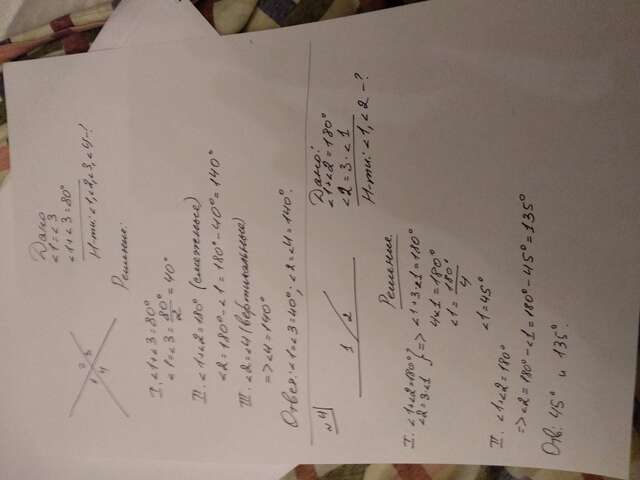 Дано
∠1=∠3
∠1+∠3=80°
Н-ти: ∠1,∠2,∠3,∠4-?
1 2 3
4
Решение:
I. ∠1+∠3=80°
∠1=∠3=80°/2=40°
II. ∠1+∠2=180° (смежные)
∠2=180°-∠1=180°-40°=140°
III. ∠2=∠4 (вертикальные)
=>∠4=140°
Ответ: ∠1=∠3=40°; ∠2=∠4=140°.
№4
1 2
Дано:
∠1+∠2=180°
∠2=3·∠1
Н-ти: ∠1,∠2-?
Решение.
I. ∠1+∠2=180°
∠2=3·∠1 } => ∠1+3·∠1=180°
4∠1=180°
∠1=180°/4
∠1=45°
II. ∠1+∠2=180°
=>∠2=180°-∠1=180°-45°=135°
Отв: 45° и 135°.